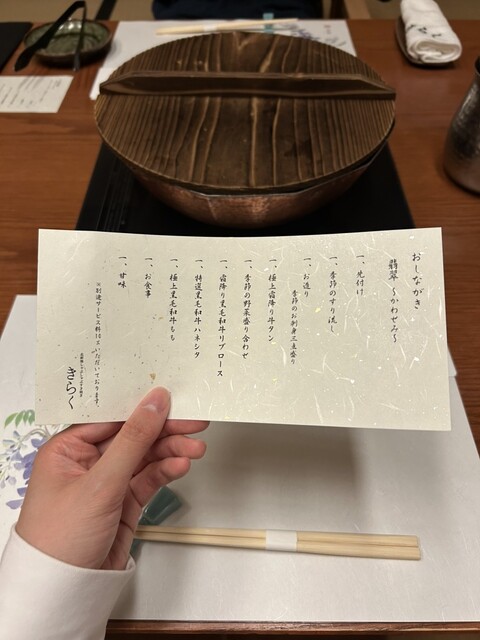 おしながき
翡翠 ～かわせみ～
一、先付け
一、季節のすり流し
一、お造り
季節のお刺身三点盛り
一、極上霜降り牛タン
一、季節の野菜盛り合わせ
一、霜降り黒毛和牛リブロース
一、特選黒毛和牛ハネシタ
一、極上黒毛和牛もも
一、お食事
一、甘味
※別途サービス料10％いただいております。
きらく